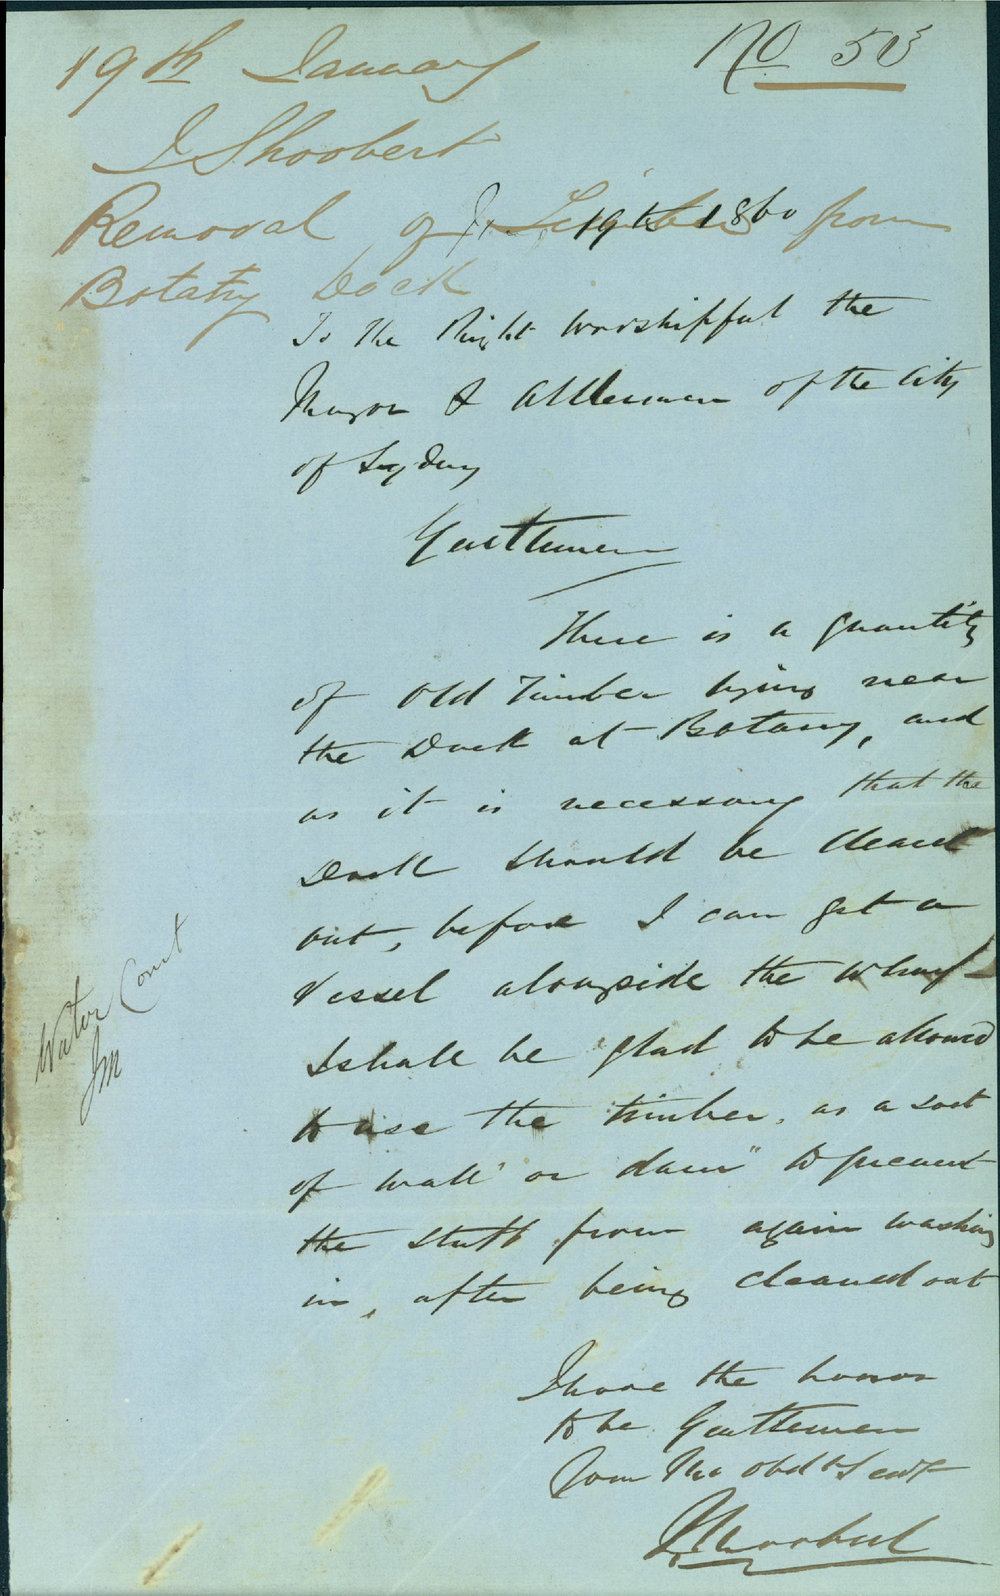 19th January
No 50
J Shoobert
Removal of Timber from
Botany Dock
19th 1860
To the Right Worshipful the
Mayor & Alldermen of the City
of Sydney
Gentlemen
There is a quantity
of old Timber lying near
the Dock at Botany, and
as it is necessary that the
Dock should be cleared
out, before I can get a
Vessel alongside the Wharf
I shall be glad to be allowed
to use the timber, as a sort
of wall "or dam" to prevent
the stuff from again washing
in, after being cleaned out
I have the honor
to be Gentlemen
Your Mo Obdt Servt
J Shoobert
Water Comt
JM